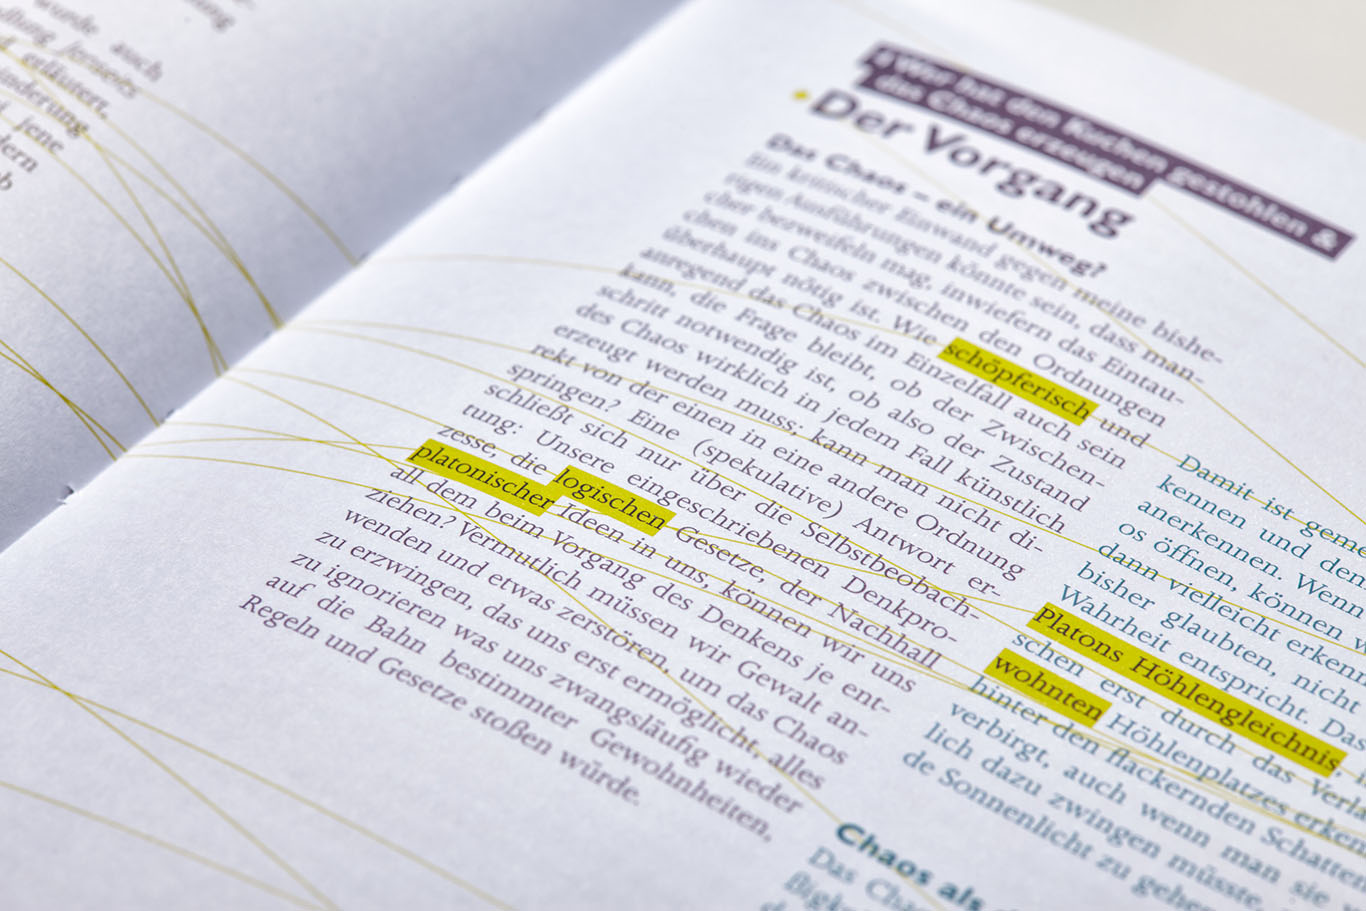 wurde auch
jenseits
erläutert,
jene
Wer hat den Kuchen gestohlen &
das Chaos erzeugen
Der Vorgang
Das Chaos – ein Umweg?
Ein kritischer Einwand gegen meine bishe-
rigen Ausführungen könnte sein, dass man-
cher bezweifeln mag, inwiefern das Eintau-
chen ins Chaos zwischen den Ordnungen
überhaupt nötig ist. Wie schöpferisch und
anregend das Chaos im Einzelfall auch sein
kann, die Frage bleibt, ob der Zwischen-
schritt notwendig ist, ob also der Zustand
des Chaos wirklich in jedem Fall künstlich
erzeugt werden muss; kann man nicht di-
rekt von der einen in eine andere Ordnung
springen? Eine (spekulative) Antwort er-
schließt sich nur über die Selbstbeobach-
tung: Unsere eingeschriebenen Denkpro-
zesse, die logischen Gesetze, der Nachhall
platonischer Ideen in uns, können wir uns
all dem beim Vorgang des Denkens je ent-
ziehen? Vermutlich müssen wir Gewalt an-
wenden und etwas zerstören, um das Chaos
zu erzwingen, das uns erst ermöglicht, alles
zu ignorieren was uns zwangsläufig wieder
auf die Bahn bestimmter Gewohnheiten,
Regeln und Gesetze stoßen würde.
Damit ist
kennen und
anerkennen. Wenn
os öffnen, können
dann vielleicht
bisher glaubten, nicht
Wahrheit entspricht.
Platons Höhlengleichnis,
schen erst durch das
wohnten Höhlenplatzes
hinter den flackernden Schatten
verbirgt, auch wenn man sie
lich dazu zwingen müsste,
de Sonnenlicht zu
Chaos als
Das